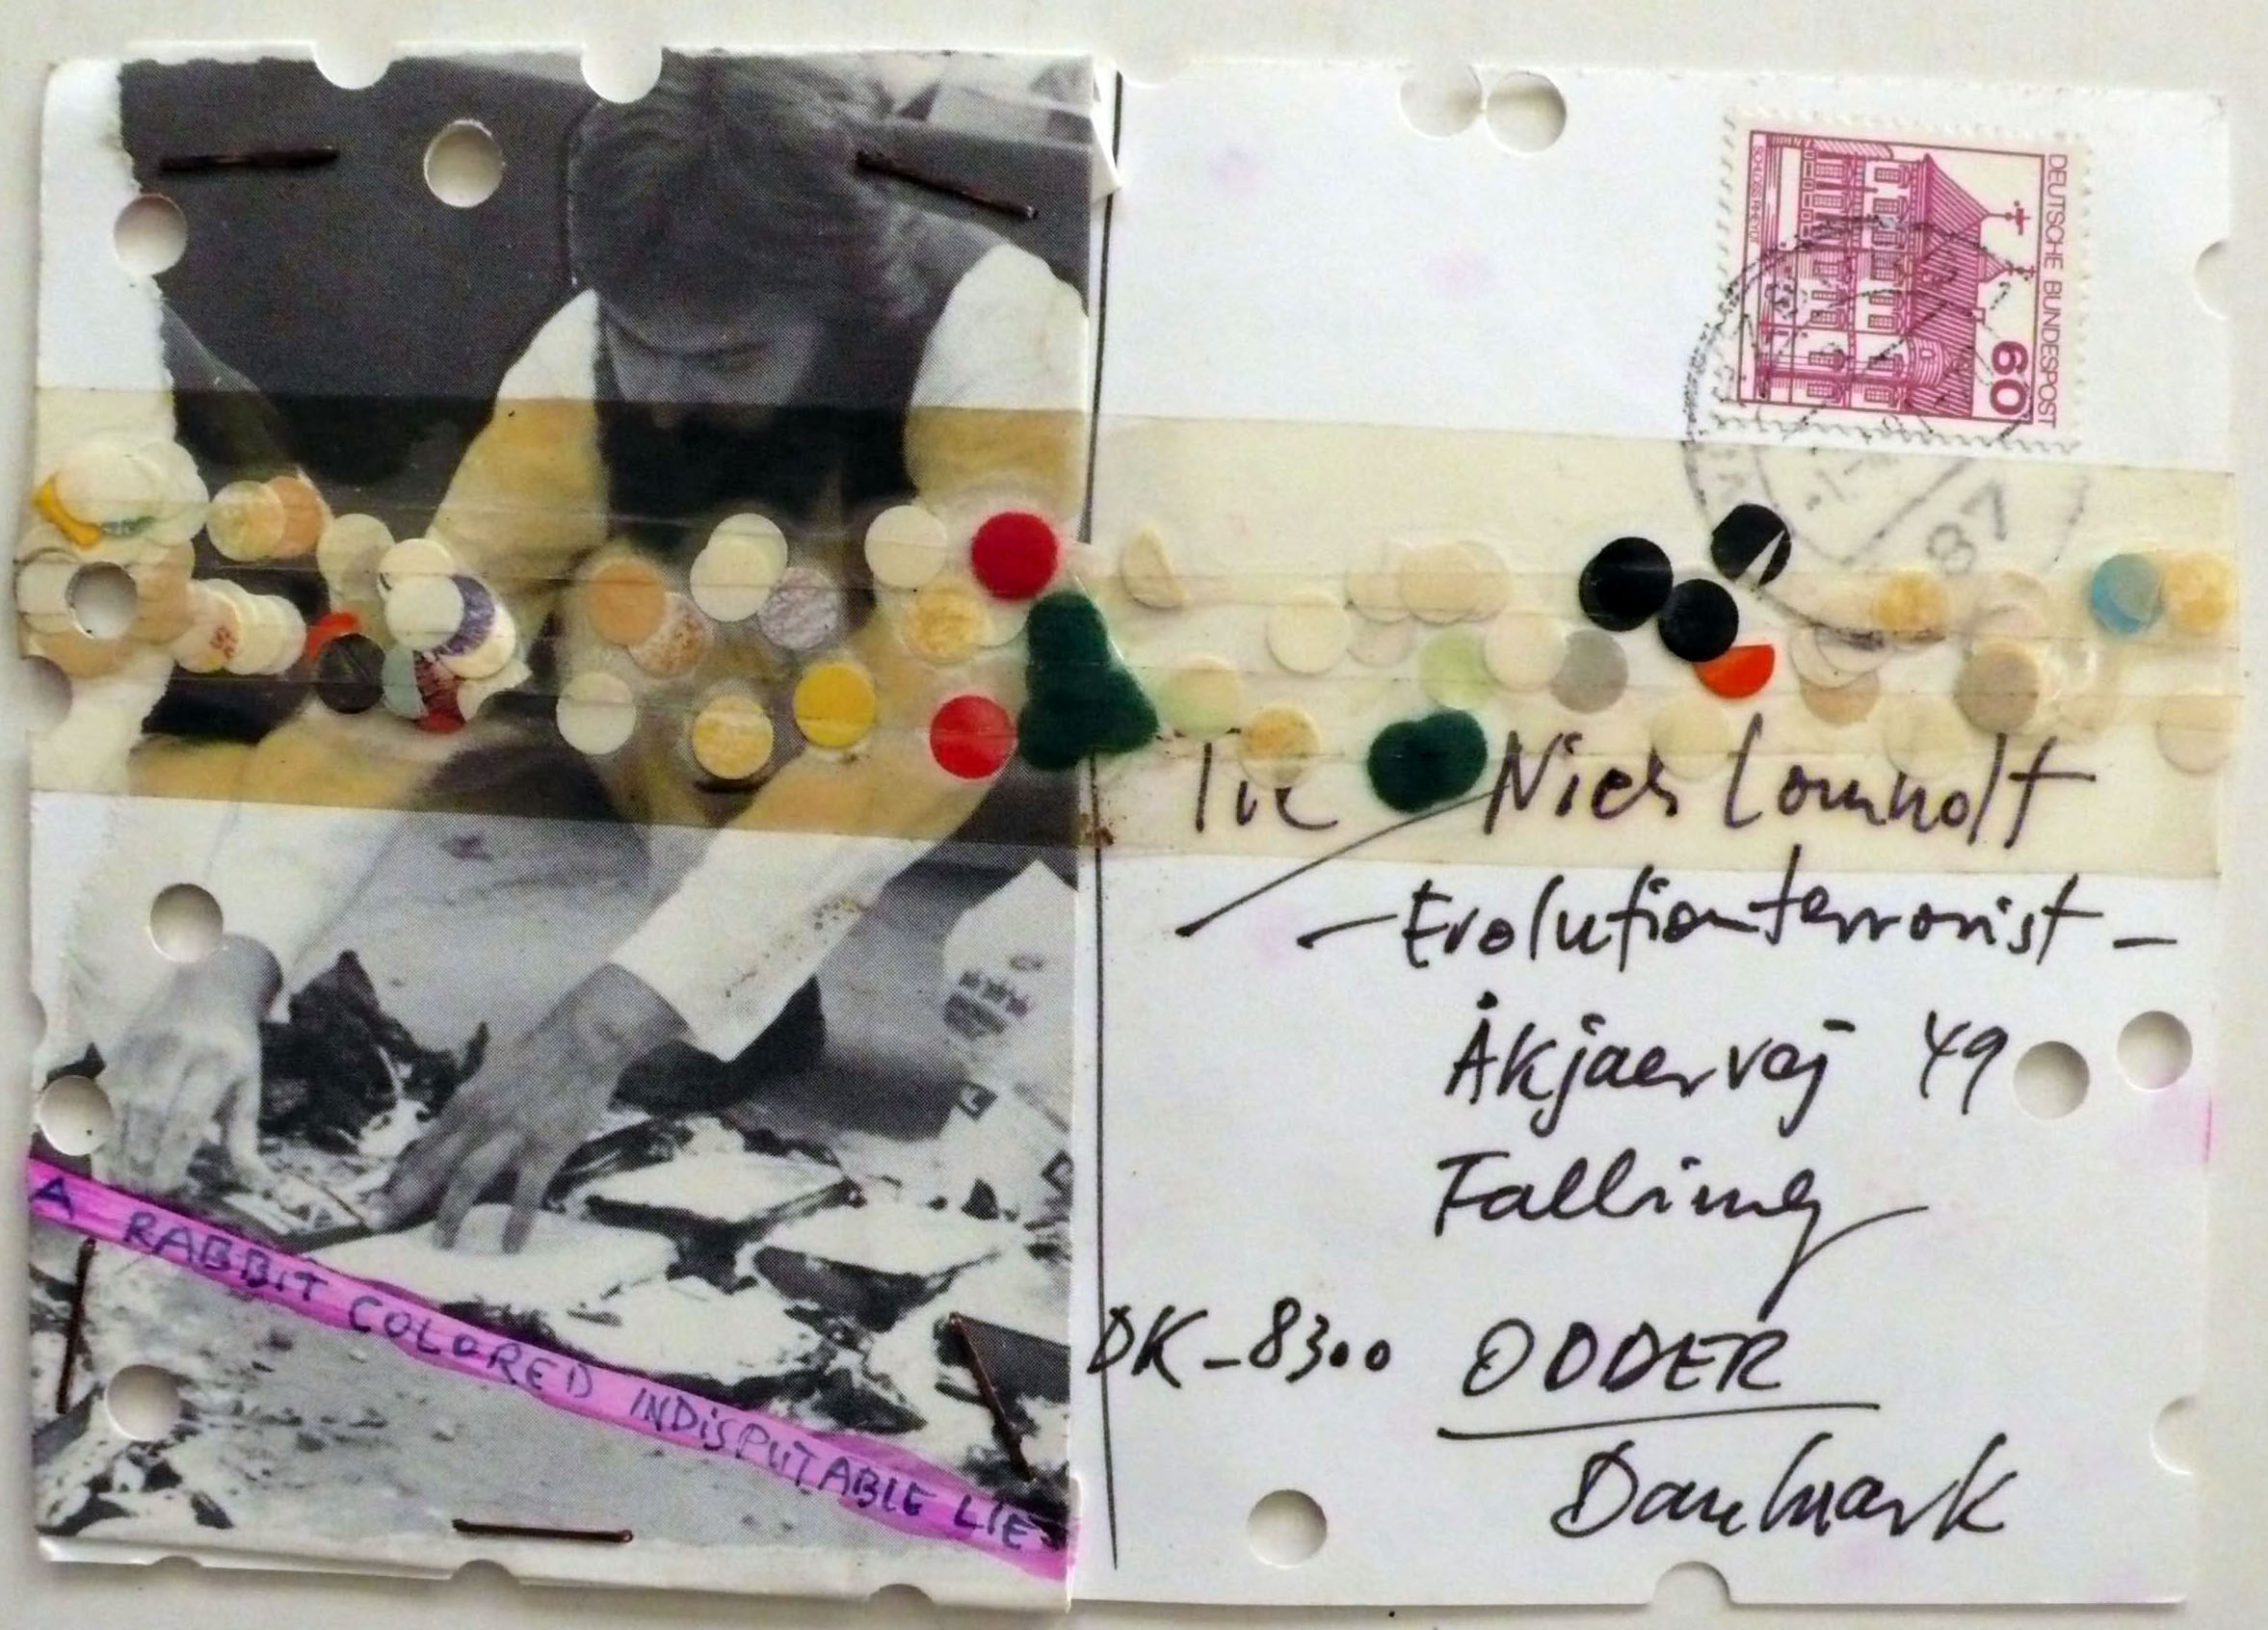 DEUTSCHE BUNDESPOST
60
SCHLOSS RHEYDT
87
Niels Lomholt
- Evolutionterrorist -
Åkjaervej 49
Falling
DK-8300 ODDER
Danmark
A RABBIT COLORED INDISPUTABLE LIE